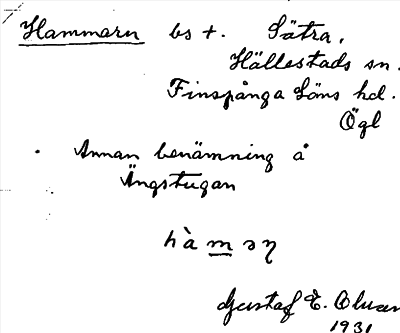 Hammarn bs t. Sätra,
Hällestads sn.
Finspånga läns hd.
Ögl
Annan benämning å
Ängstugan
hàmən
Gustaf E. Olsson
1931